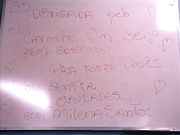 OBRIGADA pelo
CARINHO
BEM GOSTOSO
PRA TODOS VOCÊS...
SENTIR
SAUDADES...
ASS: MILENA SANTOS